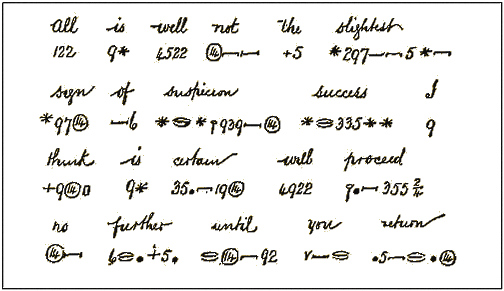 All is well not the slightest
122 9* 4522 ⑭—— +5 *297——5*—
sign of suspicion success I
*97⑭ —6 **939—⑭ *335** 9
think is certain will proceed
+9⑭ 9* 35.—19⑭ 4922 .—3552/4
no further until you return
⑭— 6.+5. ⑭—92 v— .5—.⑭